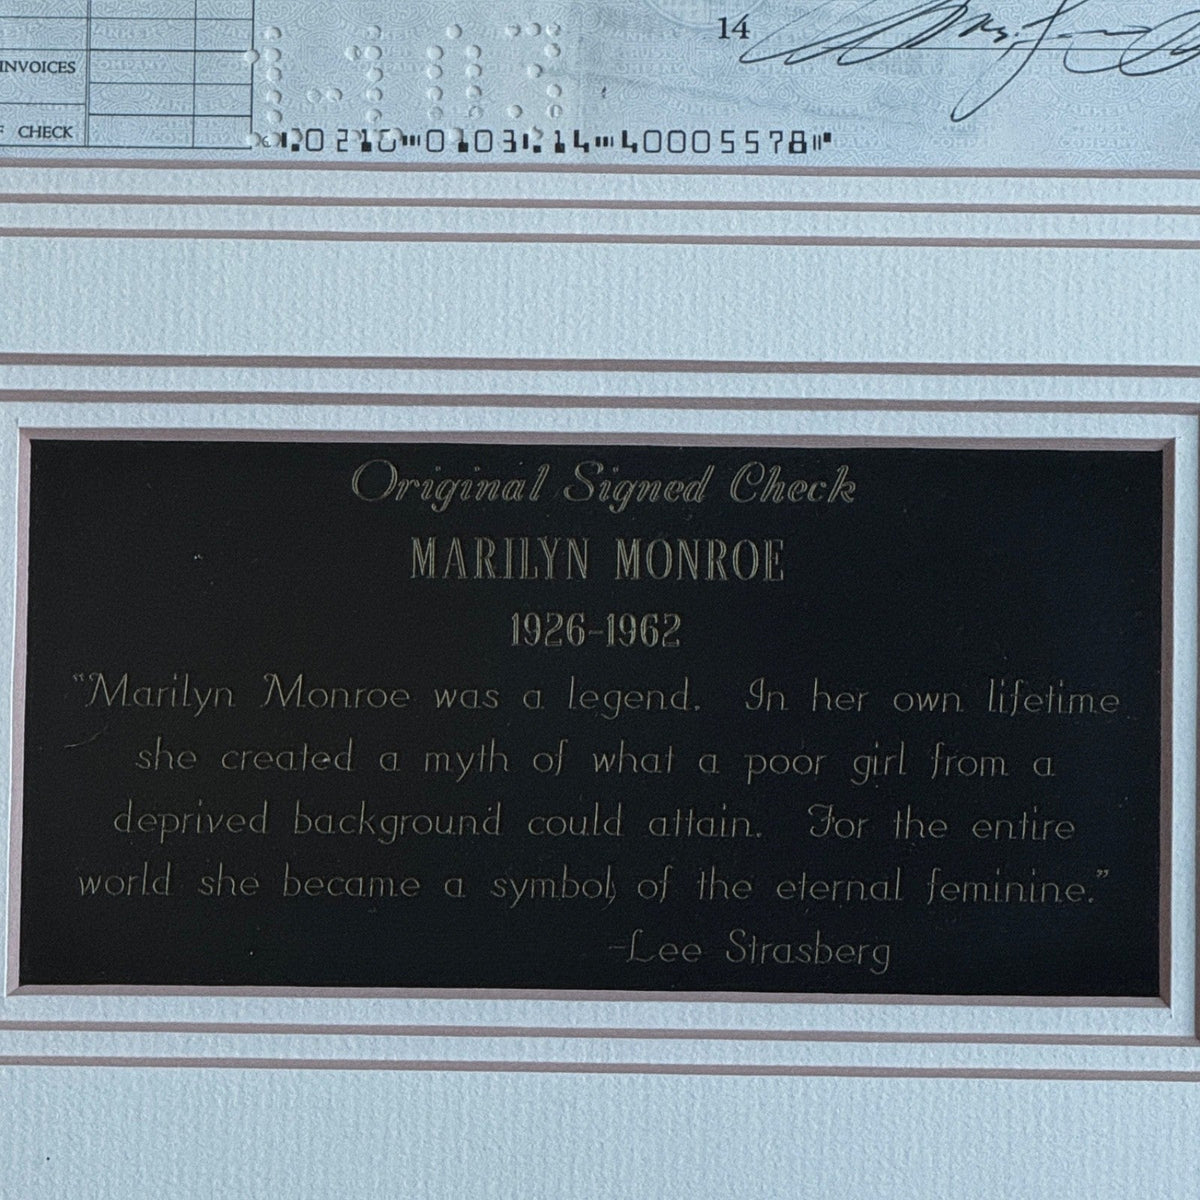 14
INVOICES
CHECK
14⑈40005578⑈
Original Signed Check
MARILYN MONROE
1926-1962
"Marilyn Monroe was a legend. In her own lifetime
she created a myth of what a poor girl from a
deprived background could attain. For the entire
world she became a symbol of the eternal feminine."
-Lee Strasberg